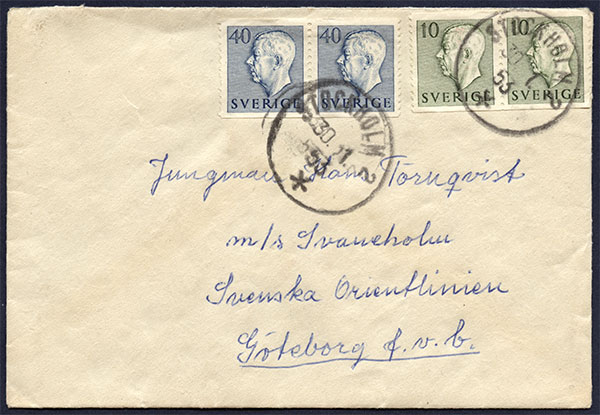 40 40 10 10
SVERIGE SVERIGE SVERIGE SVERIGE
STOCKHOLM 2
STOCKHOLM 2
30. 11.
53
Jungman Hans Törnqvist
m/s Svaneholm
Svenska Orientlinien
Göteborg f.v.b.